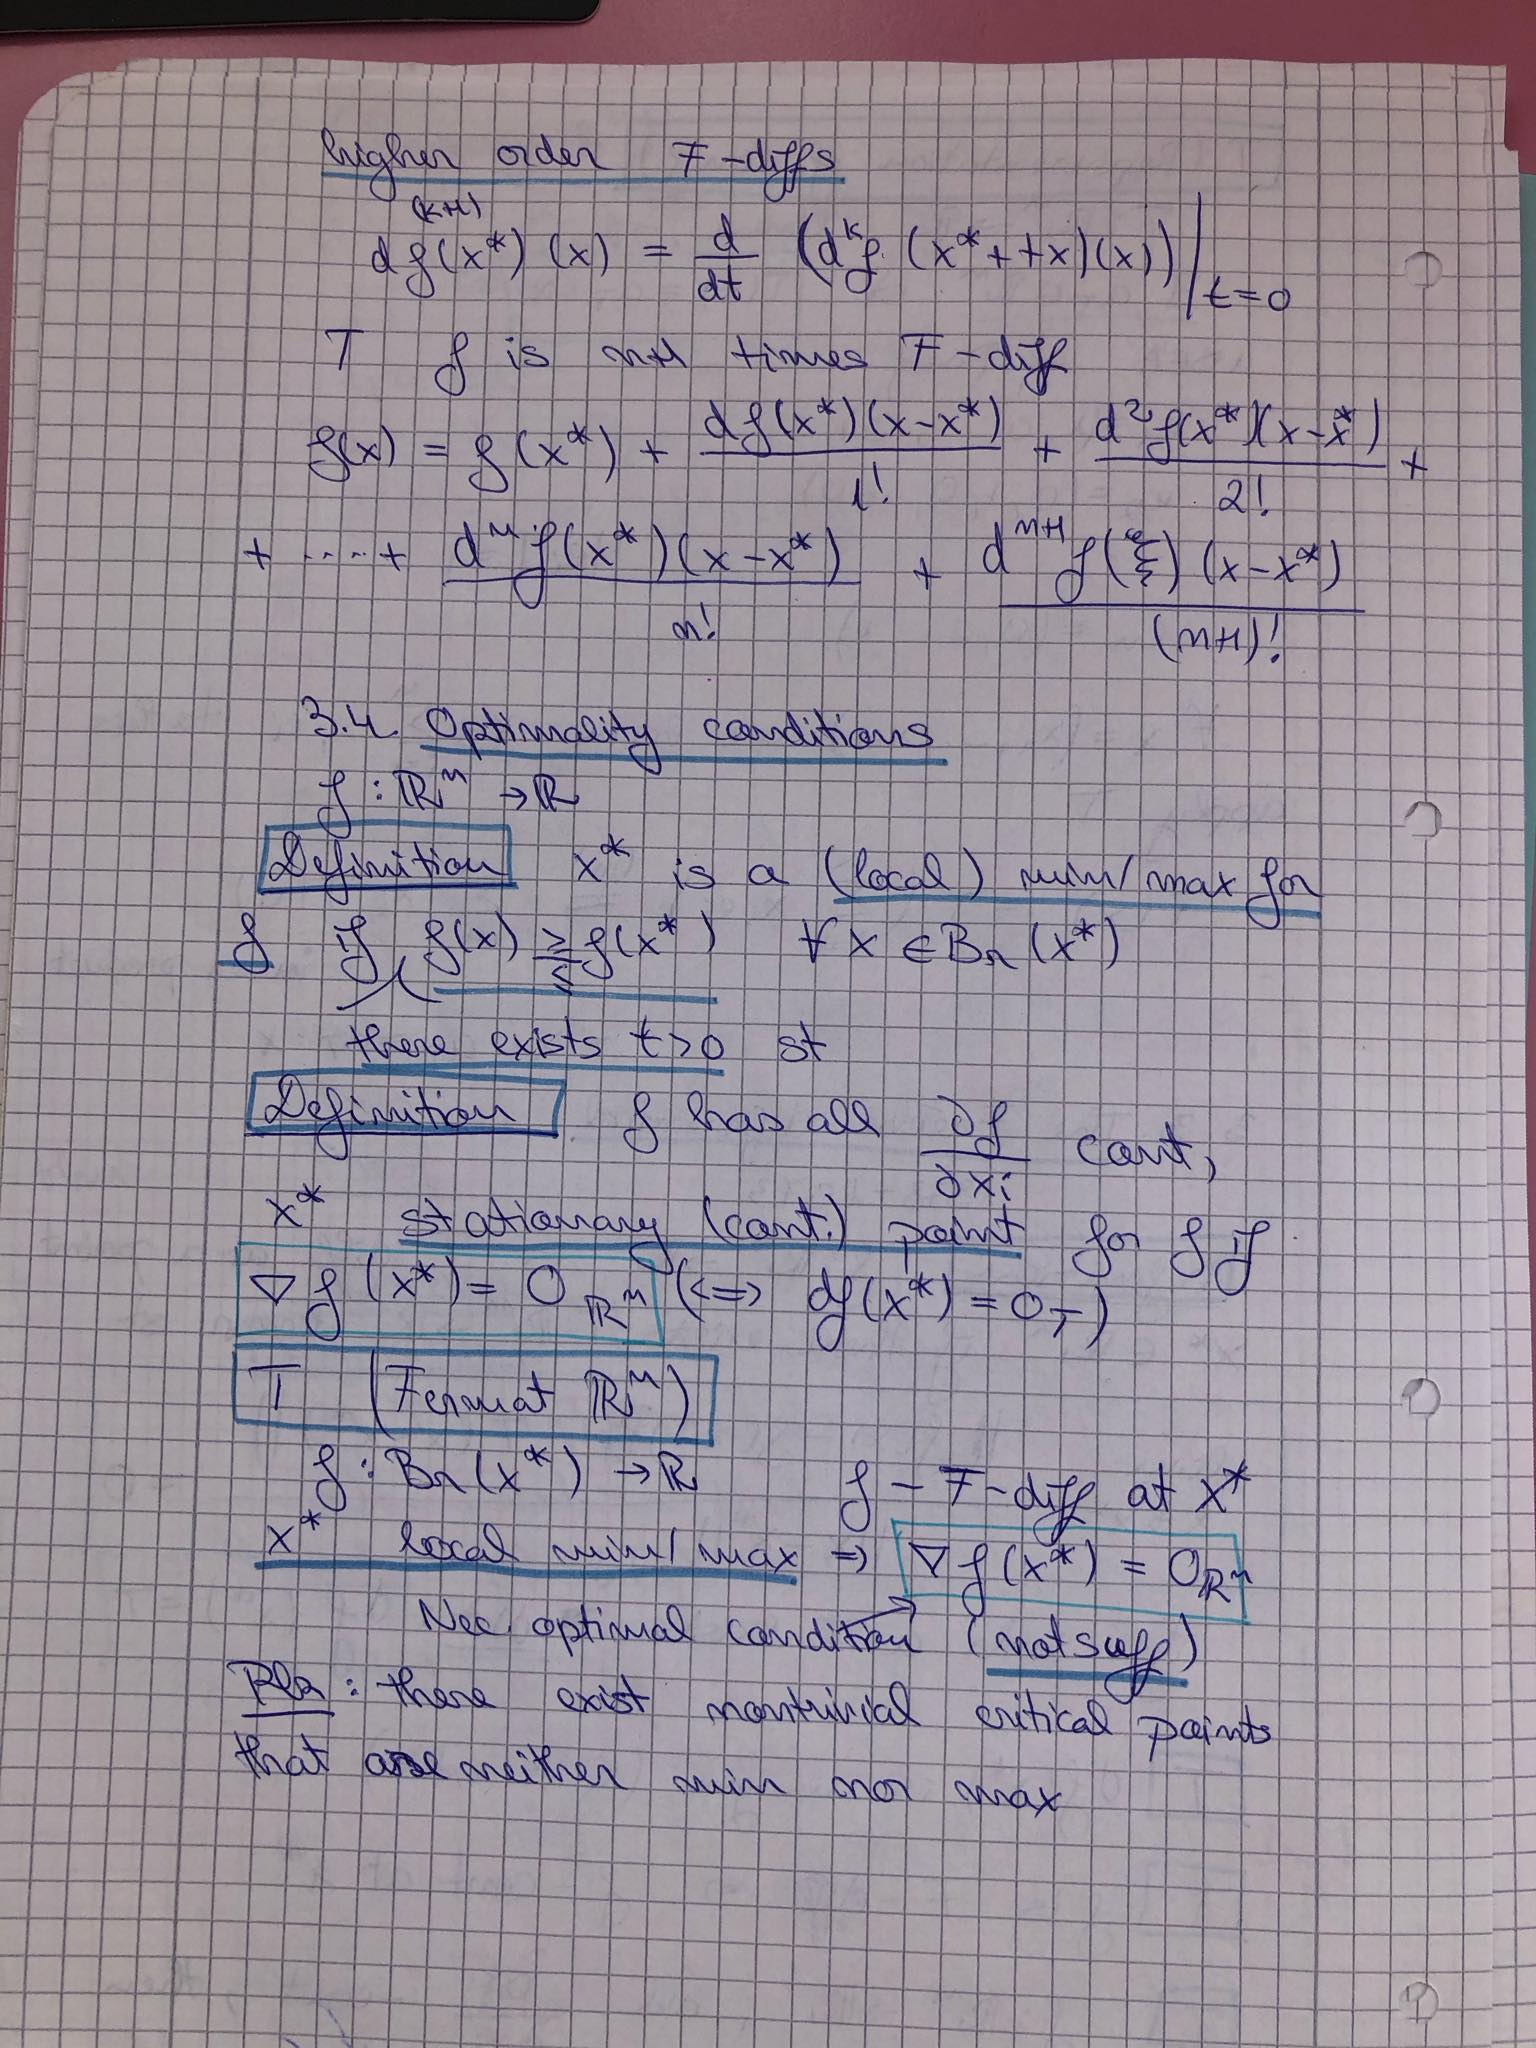 higher order F-diffs
d^(k+1) f(x*)(x) = d/dt (d^k f(x*+tx)(x)) |_{t=0}
T f is n+1 times F-diff
f(x) = f(x*) + df(x*)(x-x*)/1! + d²f(x*)(x-x*)/2! +
+ ....+ d^n f(x*)(x-x*)/n! + d^{n+1} f(ξ)(x-x*)/(n+1)!
3.4. Optimality conditions
f : ℝ^n → ℝ
Definition x* is a (local) min/max for
f if f(x) ≥/≤ f(x*) ∀ x ∈ Br(x*)
there exists t>0 st
Definition f has all ∂f/∂xi cont,
x* stationary (cont.) point for f if
∇f(x*) = 0_{ℝ^n} (<=> df(x*) = 0,-)
T (Fermat ℝ^n)
f : Br(x*) → ℝ f - F-diff at x*
x* local min/max => ∇f(x*) = 0_{ℝ^n}
Nec. optimal condition (not suff)
Rk : there exist nontrivial critical points
that are neither min nor max